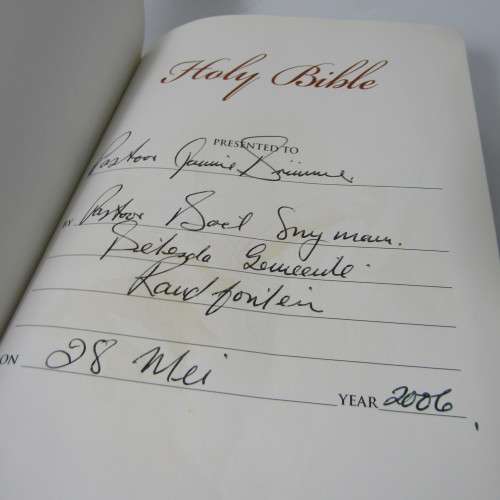 Holy Bible
PRESENTED TO
Pastoor Jannie Brümmer
BY Pastoor Boet Snyman.
Betesda Gemeente.
Randfontein
ON 28 Mei
YEAR 2006